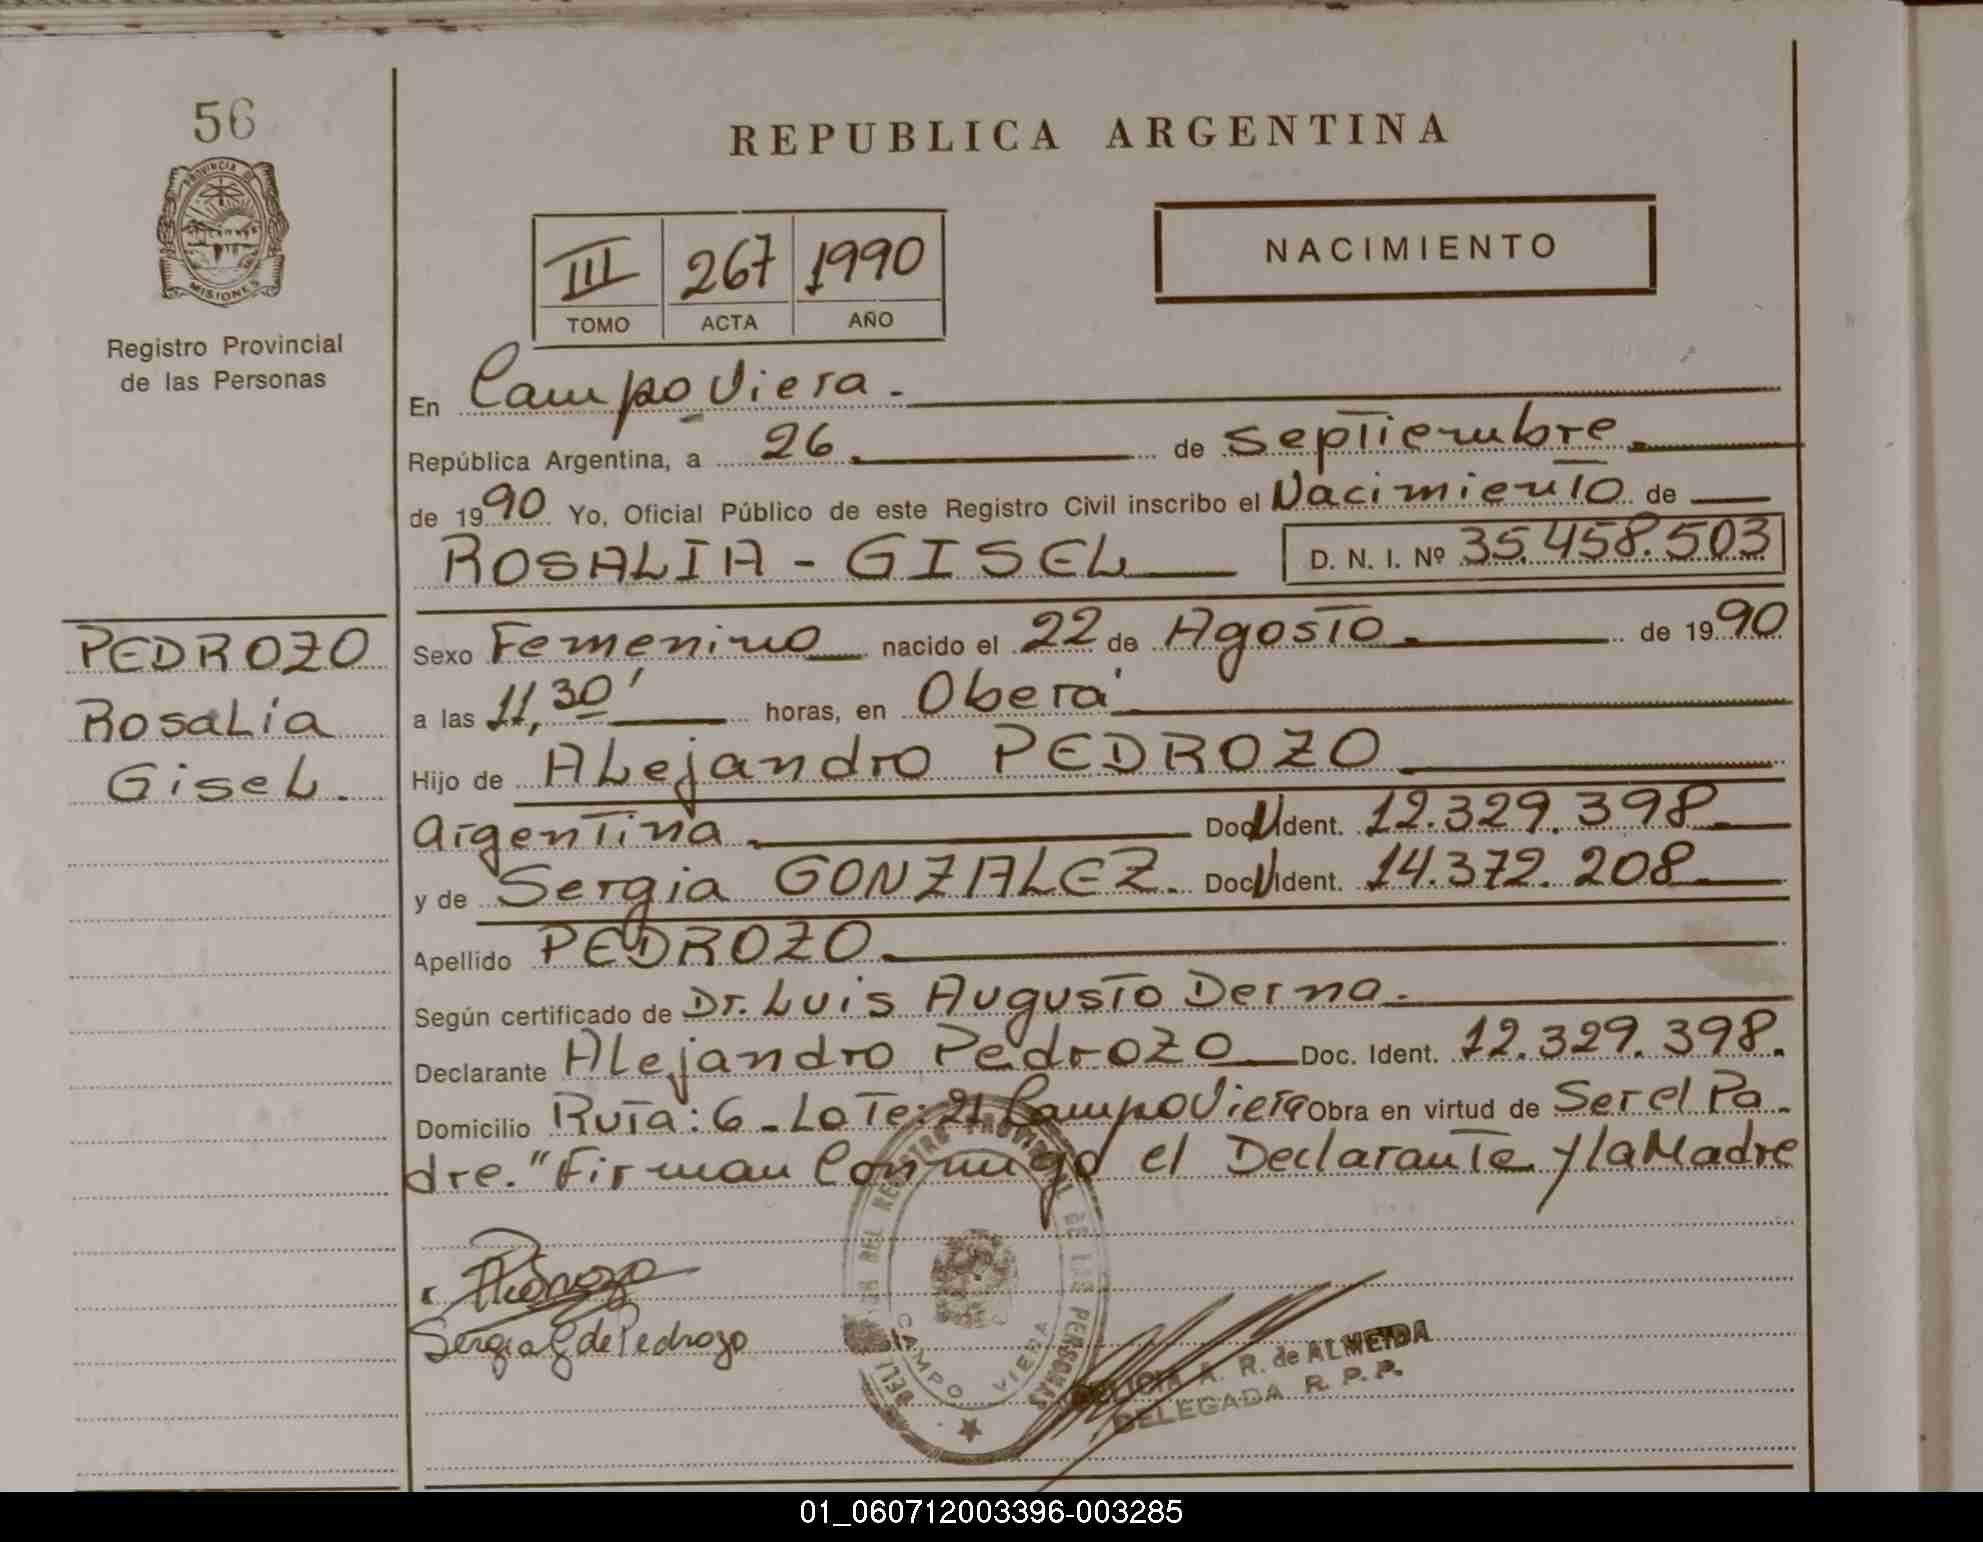 56
PROVINCIA DE
MISIONES
Registro Provincial
de las Personas
REPUBLICA ARGENTINA
III 267 1990
TOMO ACTA AÑO
NACIMIENTO
En Campo Viera.
República Argentina, a 26 de septiembre
de 1990 Yo, Oficial Público de este Registro Civil inscribo el Nacimiento de
ROSALIA - GISEL D. N. I. Nº 35.458.503
PEDROZO
Rosalía
Gisel.
Sexo Femenino nacido el 22 de Agosto de 1990
a las 11,30' horas, en Oberá
Hijo de Alejandro PEDROZO
Argentina Doc. Ident. 12.329.398
y de Sergia GONZALEZ. Doc. Ident. 14.372.208
Apellido PEDROZO
Según certificado de Dr. Luis Augusto Derna.
Declarante Alejandro Pedrozo Doc. Ident. 12.329.398.
Domicilio Ruta: 6 - Lote: 21 Campo Viera Obra en virtud de Ser el Pa-
dre. "Firman Conmigo el Declarante y la Madre
Pedrozo
Sergia G de Pedrozo
REGISTRO PROVINCIAL DE LAS PERSONAS
CAMPO VIERA
A. R. de ALMEIDA
DELEGADA R. P. P.
01_060712003396-003285